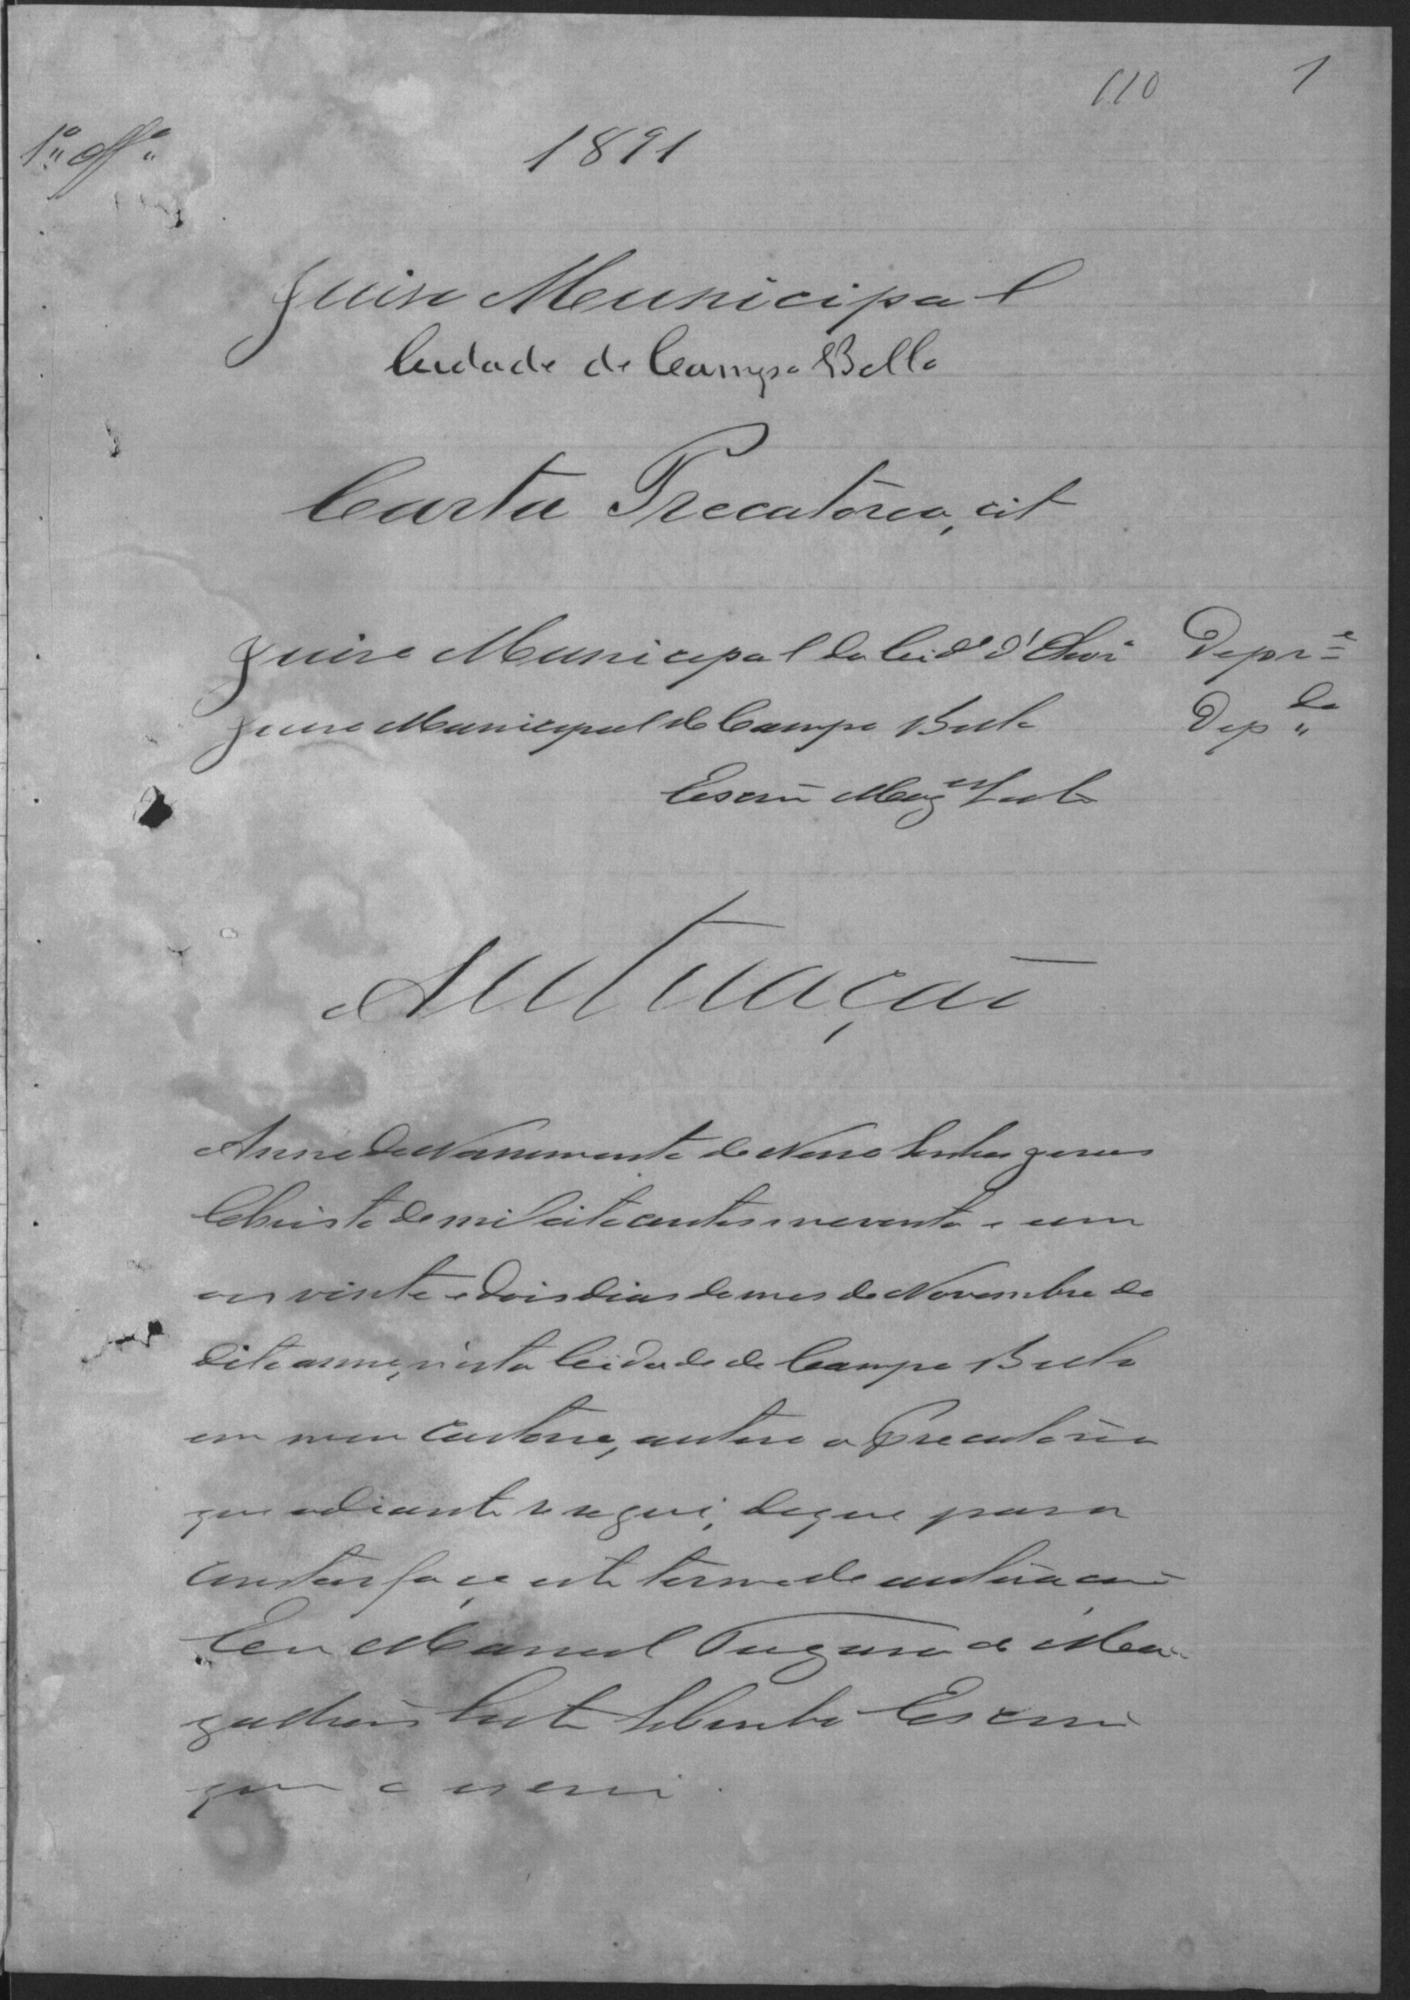 110 1
1º Offº
1891
Juiso Municipal
Cidade de Campo Bello
Carta Precatoria, cit
Juiso Municipal da Cidᵉ d' Depr.ᵉ
Juiso Municipal de Campo Bello Dep.do
Escrm
Autuação
Anno do Nascimento de Nosso Senhor Jesus
Christo de mil oito centos e noventa e um
aos vinte e dois dias do mes de Novembro do
dito anno, nesta Cidade de Campo Bello
em meu Cartorio, autuo a Precatoria
que adiante se segue, do que para
constar faço este termo de autuacão
Eu Manoel de Ma-
galhães Escrm
que o escrevi.